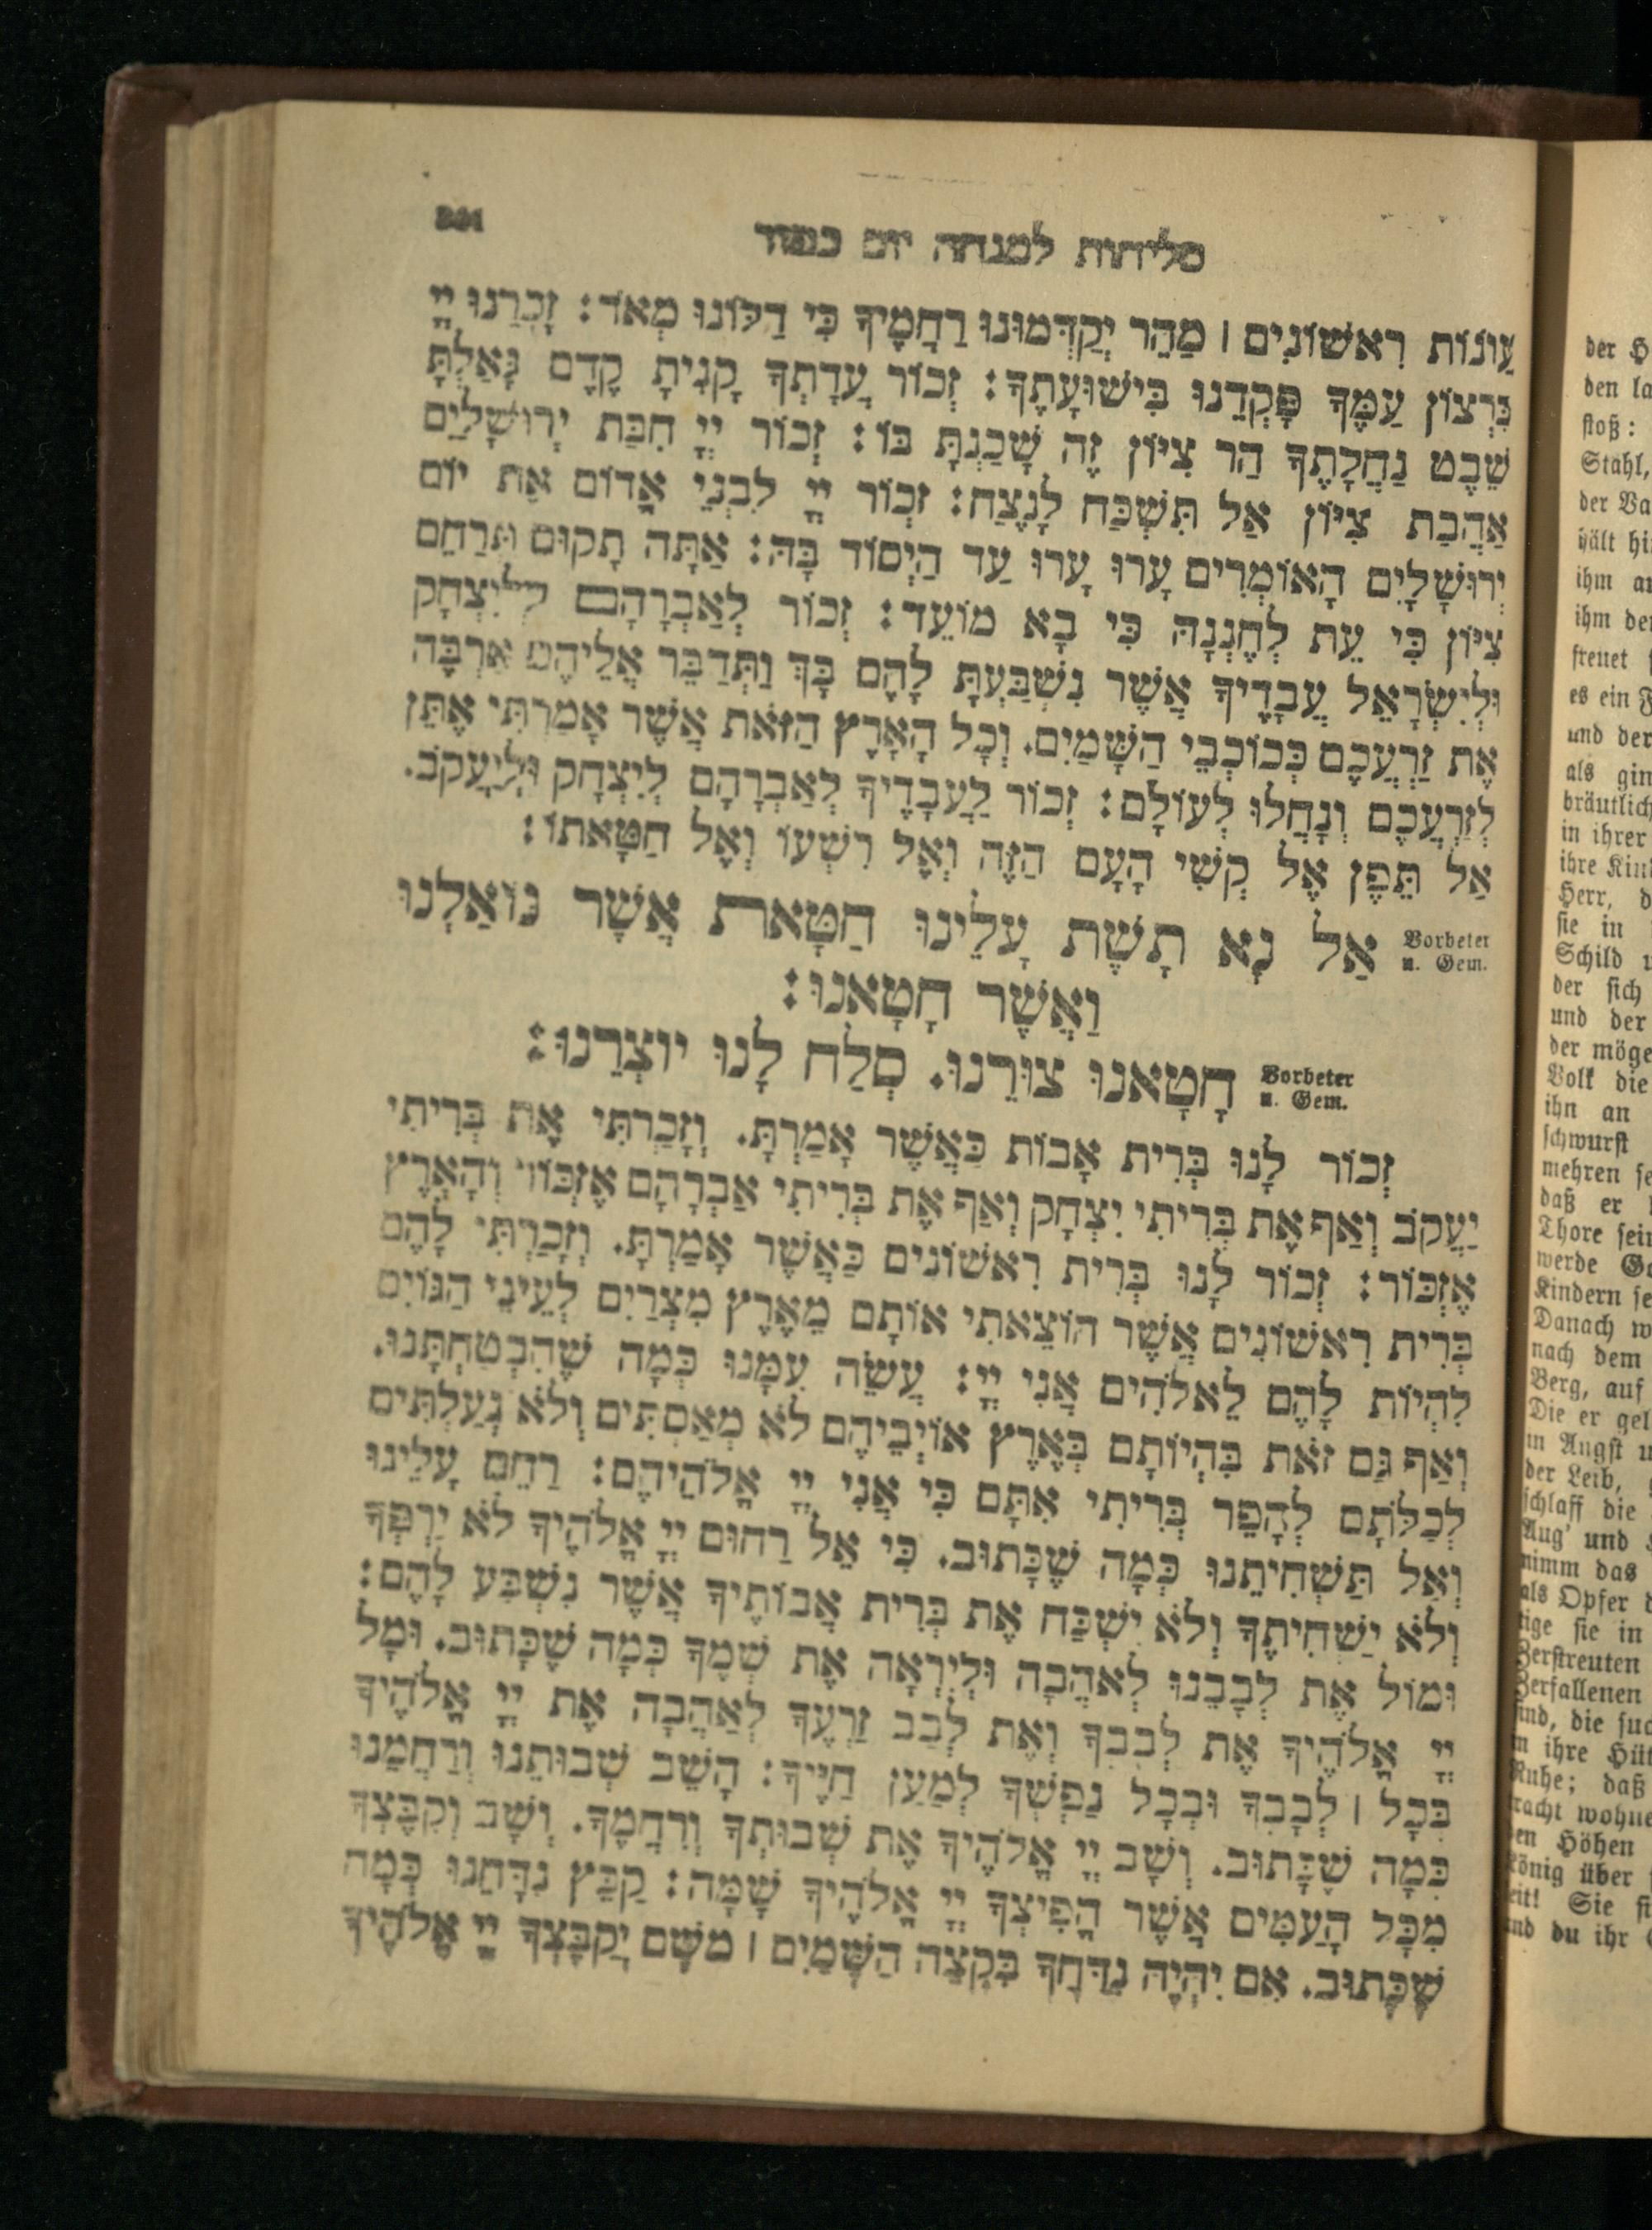 סליחות למנחה יום כפור
עֲוֹנוֹת רִאשׁוֹנִים ׀ מַהֵר יְקַדְּמוּנוּ רַחֲמֶיךָ כִּי דַלּוֹנוּ מְאֹד: זָכְרֵנוּ יְיָ
בִּרְצוֹן עַמֶּךָ פָּקְדֵנוּ בִּישׁוּעָתֶךָ: זְכוֹר עֲדָתְךָ קָנִיתָ קֶדֶם גָּאַלְתָּ
שֵׁבֶט נַחֲלָתֶךָ הַר צִיּוֹן זֶה שָׁכַנְתָּ בּוֹ: זְכוֹר יְיָ חִבַּת יְרוּשָׁלַיִם
אַהֲבַת צִיּוֹן אַל תִּשְׁכַּח לָנֶצַח: זְכוֹר יְיָ לִבְנֵי אֱדוֹם אֵת יוֹם
יְרוּשָׁלָיִם הָאוֹמְרִים עָרוּ עָרוּ עַד הַיְסוֹד בָּהּ: אַתָּה תָקוּם תְּרַחֵם
צִיּוֹן כִּי עֵת לְחֶנְנָהּ כִּי בָא מוֹעֵד: זְכוֹר לְאַבְרָהָם לְיִצְחָק
וּלְיִשְׂרָאֵל עֲבָדֶיךָ אֲשֶׁר נִשְׁבַּעְתָּ לָהֶם בָּךְ וַתְּדַבֵּר אֲלֵיהֶם אַרְבֶּה
אֶת זַרְעֲכֶם כְּכוֹכְבֵי הַשָּׁמָיִם. וְכָל הָאָרֶץ הַזֹּאת אֲשֶׁר אָמַרְתִּי אֶתֵּן
לְזַרְעֲכֶם וְנָחֲלוּ לְעוֹלָם: זְכוֹר לַעֲבָדֶיךָ לְאַבְרָהָם לְיִצְחָק וּלְיַעֲקֹב.
אַל תֵּפֶן אֶל קְשִׁי הָעָם הַזֶּה וְאֶל רִשְׁעוֹ וְאֶל חַטָּאתוֹ:
Vorbeter u. Gem. אַל נָא תָשֵׁת עָלֵינוּ חַטָּאת אֲשֶׁר נוֹאַלְנוּ
וַאֲשֶׁר חָטָאנוּ:
Vorbeter u. Gem. חָטָאנוּ צוּרֵנוּ. סְלַח לָנוּ יוֹצְרֵנוּ:
זְכוֹר לָנוּ בְּרִית אָבוֹת כַּאֲשֶׁר אָמַרְתָּ. וְזָכַרְתִּי אֶת בְּרִיתִי
יַעֲקֹב וְאַף אֶת בְּרִיתִי יִצְחָק וְאַף אֶת בְּרִיתִי אַבְרָהָם אֶזְכּוֹר וְהָאָרֶץ
אֶזְכּוֹר: זְכוֹר לָנוּ בְּרִית רִאשׁוֹנִים כַּאֲשֶׁר אָמַרְתָּ. וְזָכַרְתִּי לָהֶם
בְּרִית רִאשׁוֹנִים אֲשֶׁר הוֹצֵאתִי אוֹתָם מֵאֶרֶץ מִצְרַיִם לְעֵינֵי הַגּוֹיִם
לִהְיוֹת לָהֶם לֵאלֹהִים אֲנִי יְיָ: עֲשֵׂה עִמָּנוּ כְּמָה שֶׁהִבְטַחְתָּנוּ.
וְאַף גַּם זֹאת בִּהְיוֹתָם בְּאֶרֶץ אוֹיְבֵיהֶם לֹא מְאַסְתִּים וְלֹא גְעַלְתִּים
לְכַלֹּתָם לְהָפֵר בְּרִיתִי אִתָּם כִּי אֲנִי יְיָ אֱלֹהֵיהֶם: רַחֵם עָלֵינוּ
וְאַל תַּשְׁחִיתֵנוּ כְּמָה שֶׁכָּתוּב. כִּי אֵל רַחוּם יְיָ אֱלֹהֶיךָ לֹא יַרְפְּךָ
וְלֹא יַשְׁחִיתֶךָ וְלֹא יִשְׁכַּח אֶת בְּרִית אֲבוֹתֶיךָ אֲשֶׁר נִשְׁבַּע לָהֶם:
וּמוֹל אֶת לְבָבֵנוּ לְאַהֲבָה וּלְיִרְאָה אֶת שְׁמֶךָ כְּמָה שֶׁכָּתוּב. וּמָל
יְיָ אֱלֹהֶיךָ אֶת לְבָבְךָ וְאֶת לְבַב זַרְעֶךָ לְאַהֲבָה אֶת יְיָ אֱלֹהֶיךָ
בְּכָל ׀ לְבָבְךָ וּבְכָל נַפְשְׁךָ לְמַעַן חַיֶּיךָ: הָשֵׁב שְׁבוּתֵנוּ וְרַחֲמֵנוּ
כְּמָה שֶׁכָּתוּב. וְשָׁב יְיָ אֱלֹהֶיךָ אֶת שְׁבוּתְךָ וְרִחֲמֶךָ. וְשָׁב וְקִבֶּצְךָ
מִכָּל הָעַמִּים אֲשֶׁר הֱפִיצְךָ יְיָ אֱלֹהֶיךָ שָׁמָּה: קַבֵּץ נִדָּחֵנוּ כְּמָה
שֶׁכָּתוּב. אִם יִהְיֶה נִדַּחֲךָ בִּקְצֵה הַשָּׁמָיִם ׀ מִשָּׁם יְקַבֶּצְךָ יְיָ אֱלֹהֶיךָ
der H
den la
stoß:
Stahl,
der Va
hält hi
ihm an
ihm de
freuet
es ein F
und der
als gin
bräutlich
in ihrer
ihre Kin
Herr, d
sie in
Schild u
der sich
und der
der möge
Volk die
ihn an
schwurst
mehren se
daß er
Thore sein
werde Ge
Kindern se
Danach w
nach dem
Berg, auf
Die er gel
in Angst u
der Leib,
schlaff die
Aug' und
nimm das
als Opfer d
tige sie in
Zerstreuten
Zerfallenen
sind, die suc
in ihre Hüt
Ruhe; daß
tracht wohne
den Höhen
König über
eit! Sie si
und du ihr